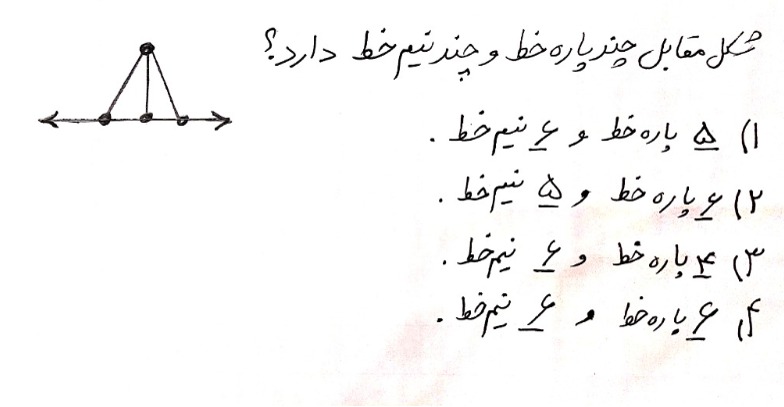 شکل مقابل چند پاره خط و چند نیم خط دارد؟
۱) ۵ پاره خط و ۶ نیم خط.
۲) ۶ پاره خط و ۵ نیم خط.
۳) ۴ پاره خط و ۶ نیم خط.
۴) ۶ پاره خط و ۶ نیم خط.